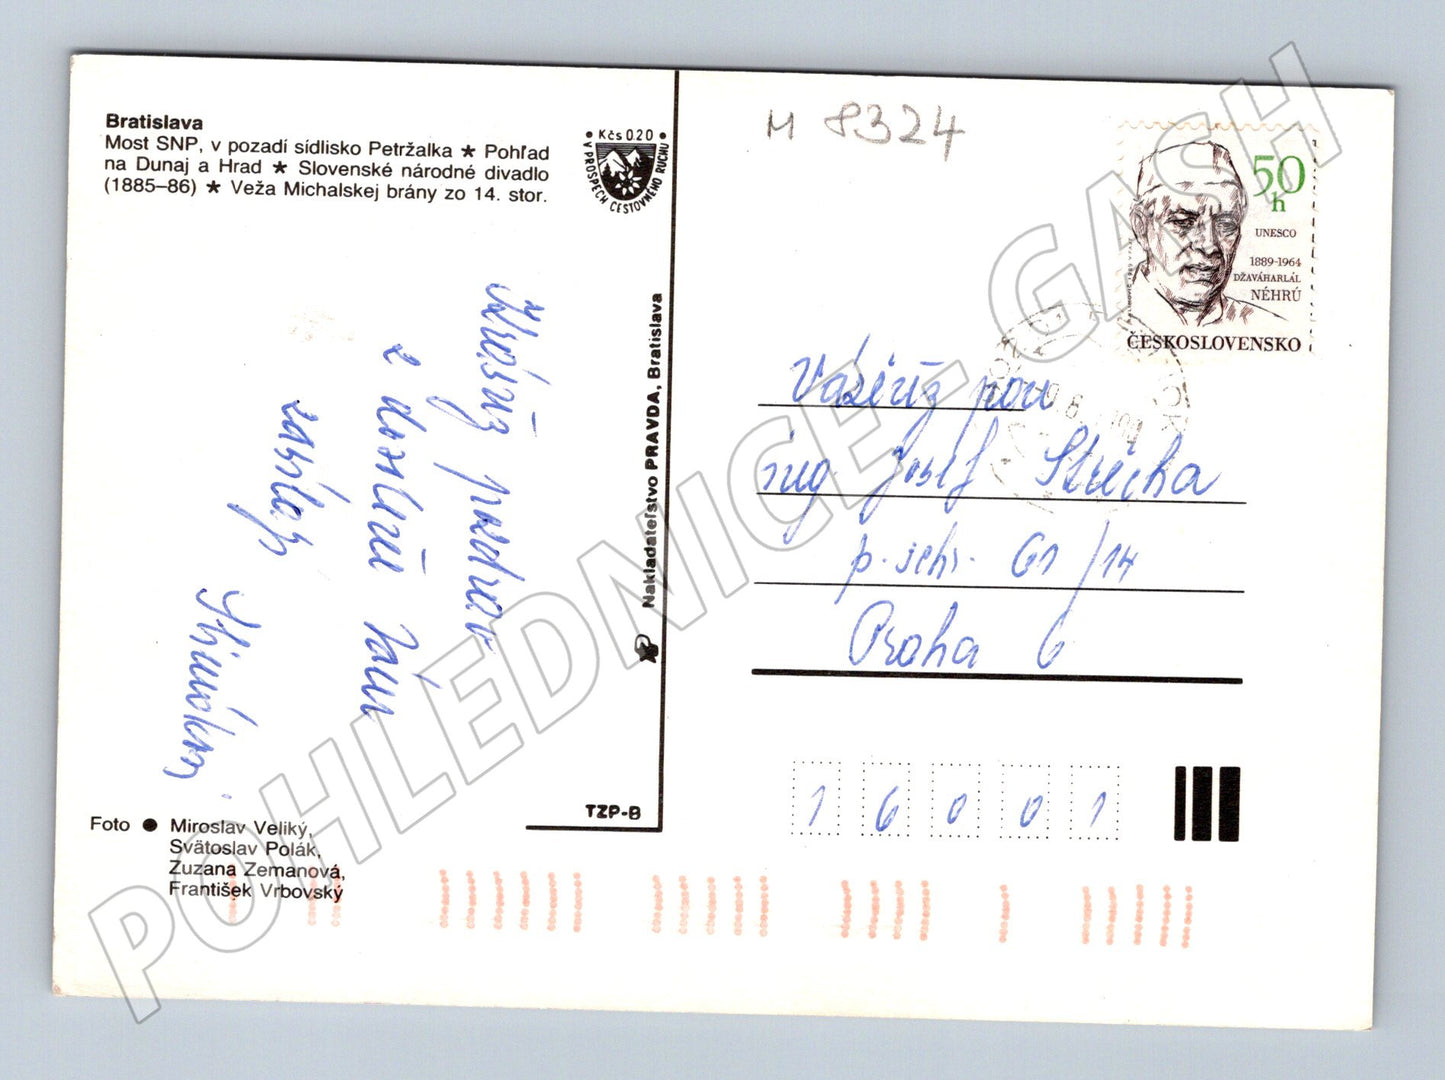 Bratislava
Most SNP, v pozadí sídlisko Petržalka ★ Pohľad
na Dunaj a Hrad ★ Slovenské národné divadlo
(1885–86) ★ Veža Michalskej brány zo 14. stor.
• Kčs 0.20 •
V PROSPECH CESTOVNÉHO RUCHU
M 8324
50
h
UNESCO
1889-1964
DŽAVÁHARLÁL
NÉHRÚ
ČESKOSLOVENSKO
Krásný pozdrav
z dovolené Vám
zasílají
Vážený pan
ing. Josef Střecha
p. schr. 61/14
Praha 6
16001
Nakladateľstvo PRAVDA, Bratislava
TZP-B
Foto ● Miroslav Veliký,
Svätoslav Polák,
Zuzana Zemanová,
František Vrbovský
POHLEDNICE - GASH